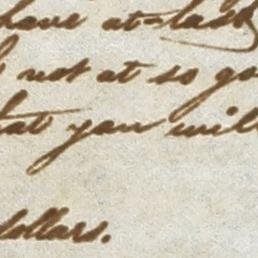 have at=last
not at so go
that you will
dollars.